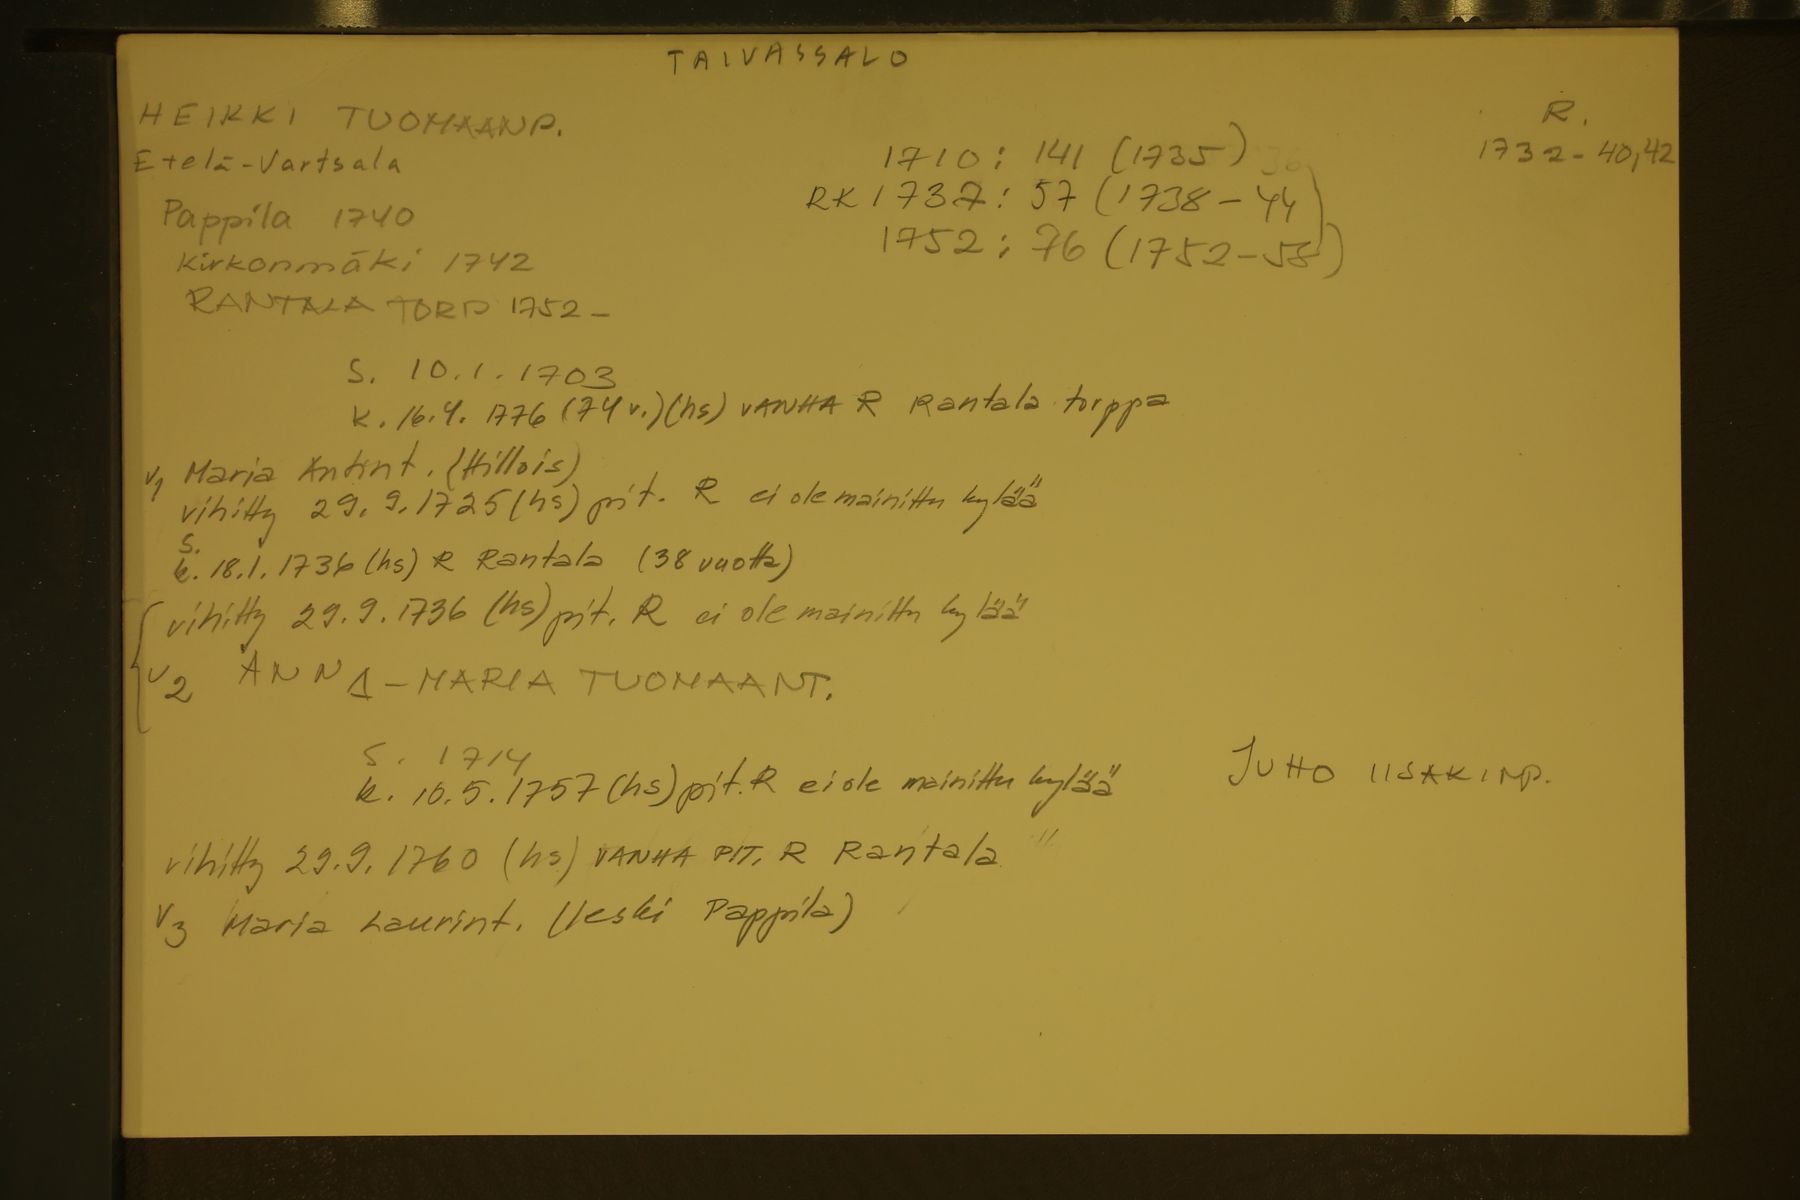 TAIVASSALO
HEIKKI TUOMAANP.
R.
Etelä-Vartsala
1710: 141 (1735) 36
1732-40,42
Pappila 1740
RK 1737: 57 (1738-44)
Kirkonmäki 1742
1752: 76 (1752-58)
RANTALA TORP 1752-
S. 10.1.1703
K. 16.4. 1776 (74 v.) (hs) VANHA R Rantala torppa
v1 Maria Antint. (Hillois)
vihitty 29.9.1725 (hs) pit. R ei ole mainittu kylää
S.
k. 18.1.1736 (hs) R Rantala (38 vuotta)
vihitty 29.9.1736 (hs) pit. R ei ole mainittu kylää
v2 ANNA-MARIA TUOMAANT.
S. 1714
k. 10.5.1757 (hs) pit. R ei ole mainittu kylää
JUHO IISAKINP.
vihitty 29.9.1760 (hs) VANHA PIT. R Rantala "
v3 Maria Laurint. (leski Pappila)